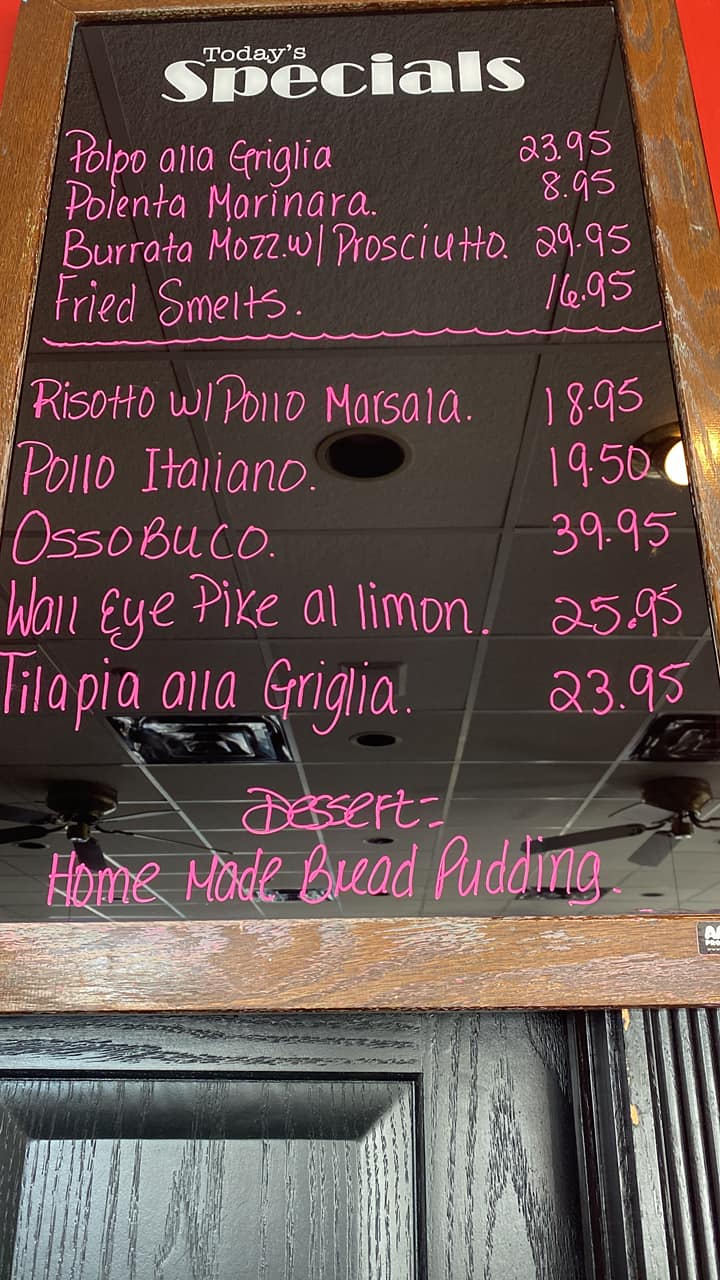 Today's
Specials
Polpo alla Griglia 23.95
Polenta Marinara. 8.95
Burrata Mozz. w/ Prosciutto. 29.95
Fried Smelts. 16.95
Risotto w/ Pollo Marsala. 18.95
Pollo Italiano. 19.50
Osso Buco. 39.95
Wall Eye Pike al limon. 25.95
Tilapia alla Griglia. 23.95
Dessert=
Home Made Bread Pudding.